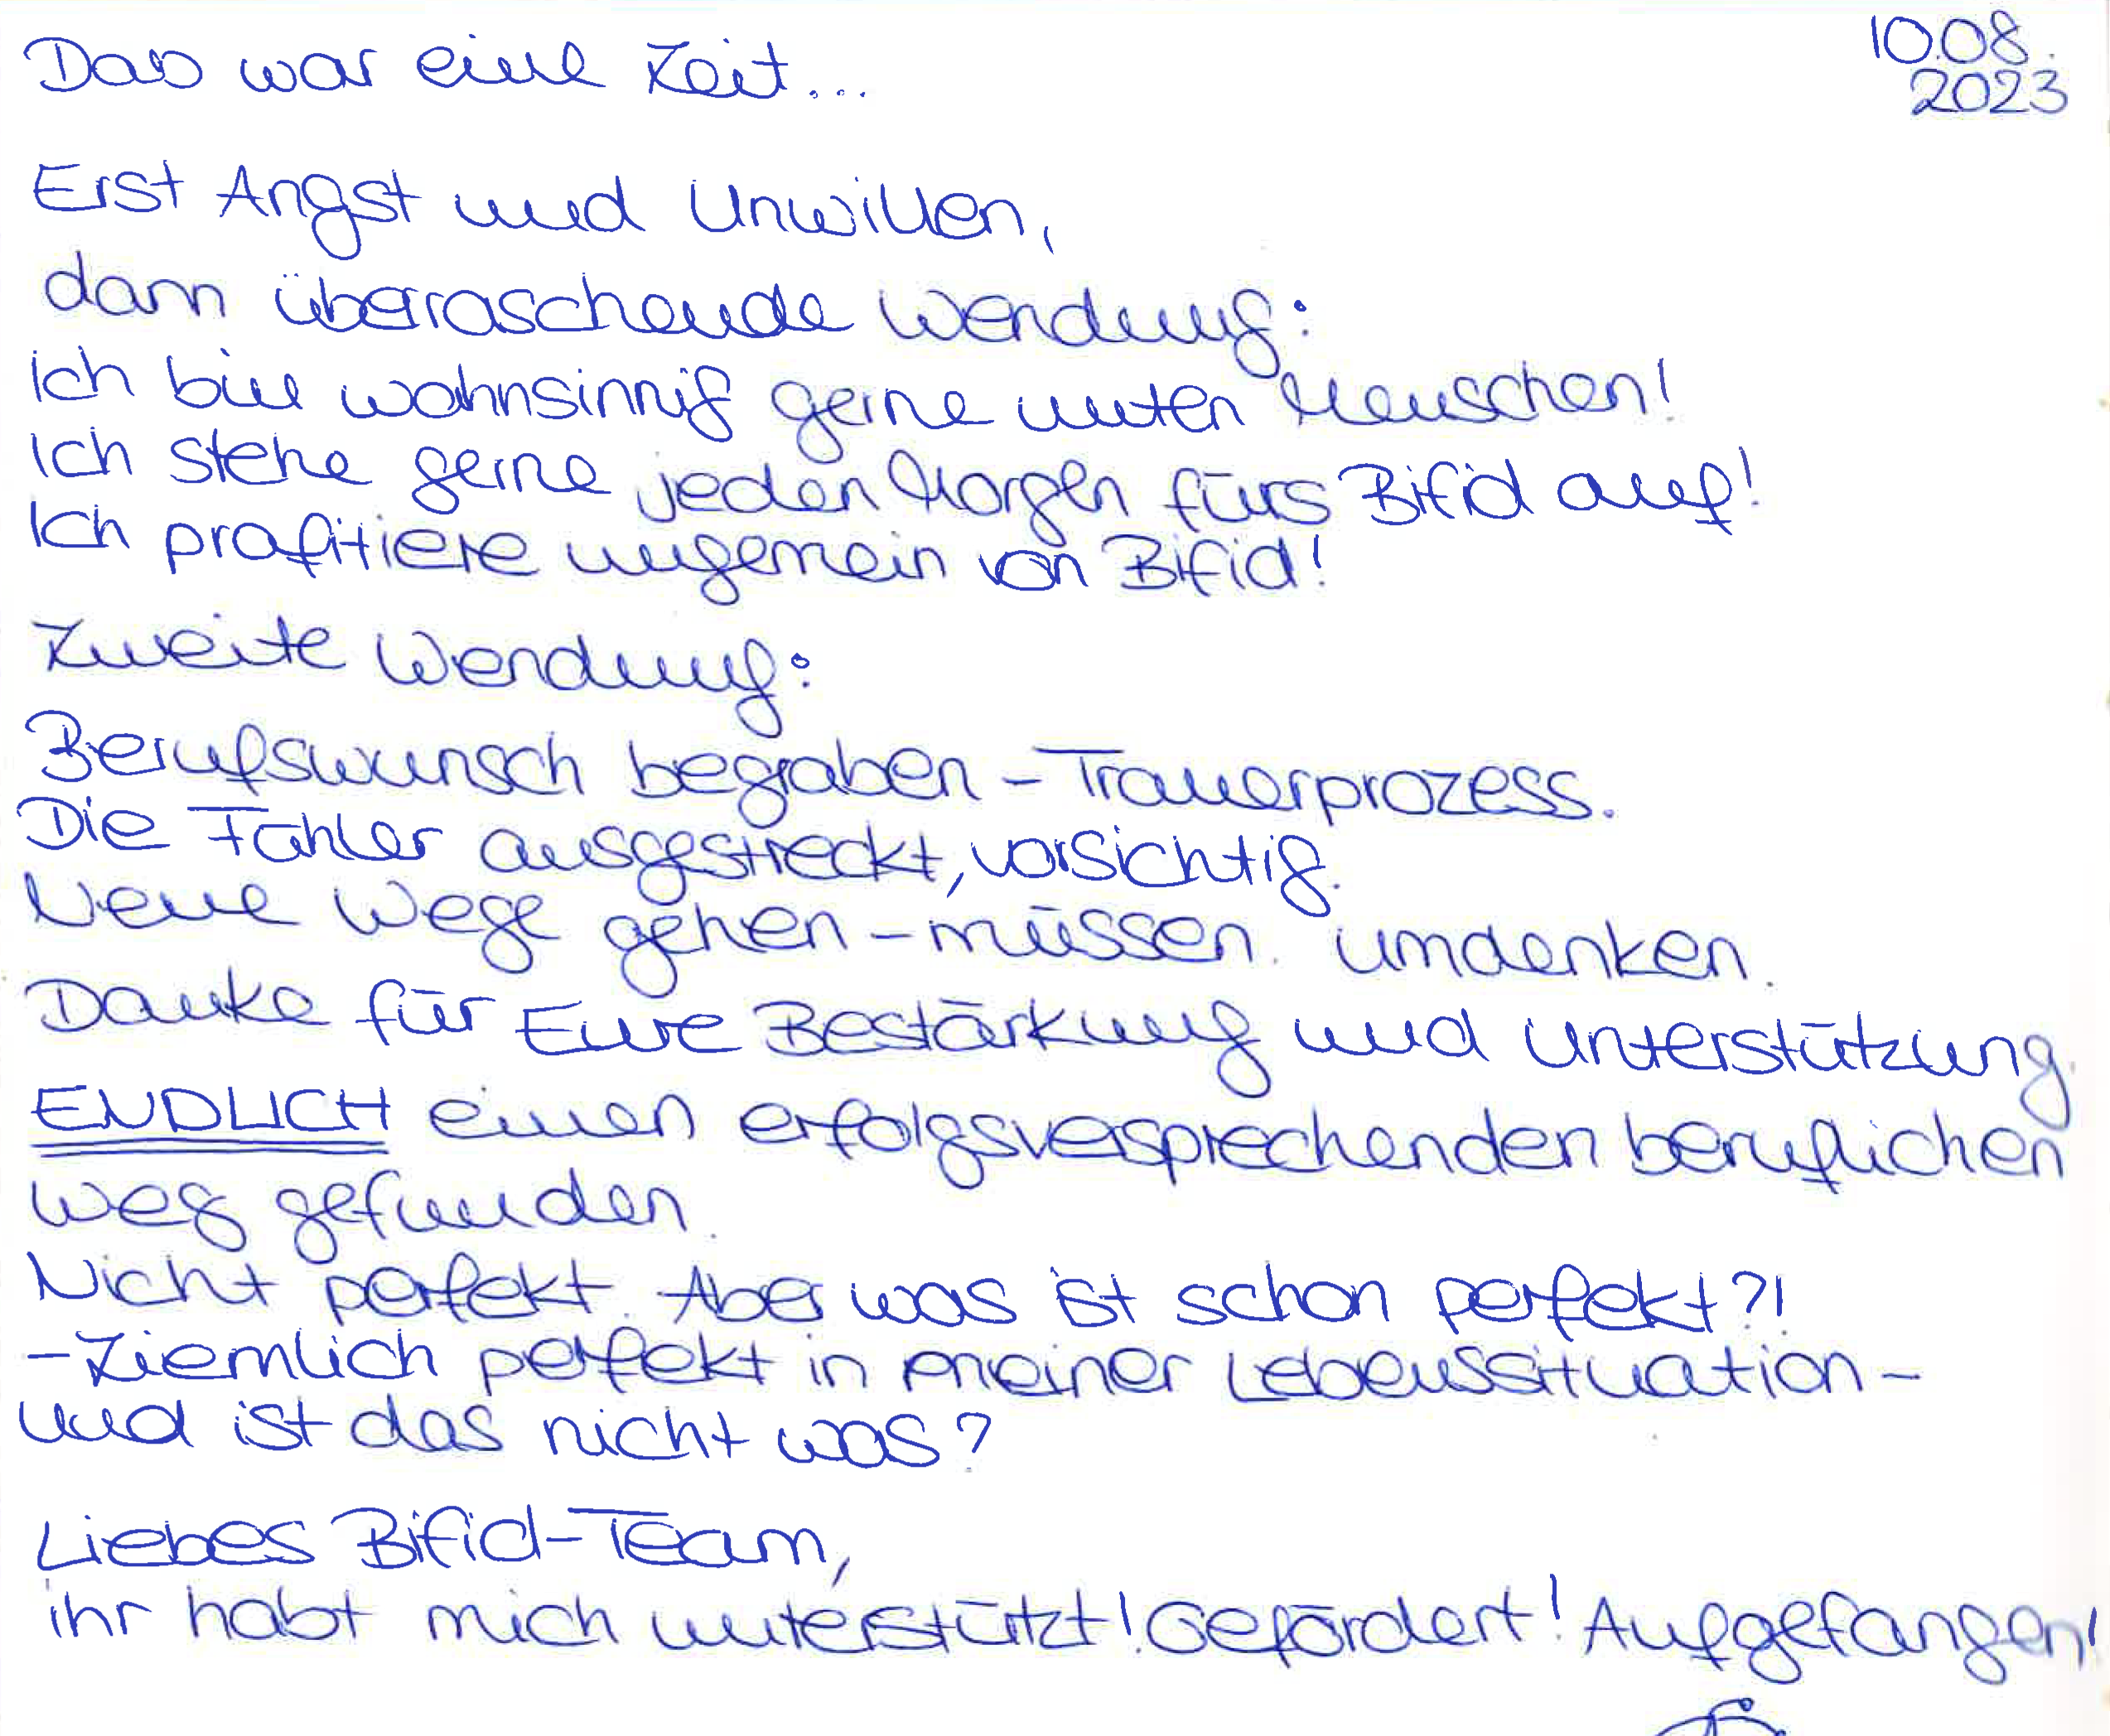 Das war eine Zeit...
10.08.
2023
Erst Angst und Unwillen,
dann überraschende Wendung:
Ich bin wahnsinnig gerne unter Menschen!
Ich stehe gerne jeden Morgen fürs Bifid auf!
Ich profitiere ungemein von Bifid!
Zweite Wendung:
Berufswunsch begraben – Trauerprozess.
Die Fühler ausgestreckt, vorsichtig.
Neue Wege gehen – müssen. Umdenken.
Danke für Eure Bestärkung und Unterstützung.
ENDLICH einen erfolgsversprechenden beruflichen
Weg gefunden.
Nicht perfekt. Aber was ist schon perfekt?!
– Ziemlich perfekt in meiner Lebenssituation –
und ist das nicht was?
Liebes Bifid-Team,
ihr habt mich unterstützt! Gefördert! Aufgefangen!